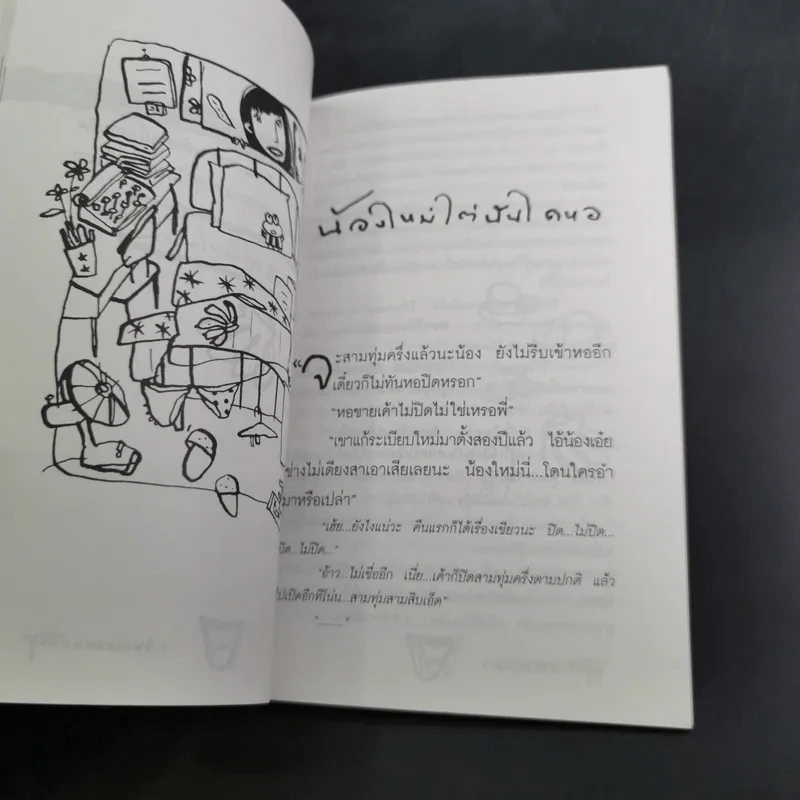 น้องใหม่ไต่บันไดหอ
"จะสามทุ่มครึ่งแล้วนะน้อง ยังไม่รีบเข้าหออีก
เดี๋ยวก็ไม่ทันหอปิดหรอก"
"หอชายเค้าไม่ปิดไม่ใช่เหรอพี่"
"เขาแก้ระเบียบใหม่มาตั้งสองปีแล้ว ไอ้น้องเอ๋ย
ช่างไม่เดียงสาเอาเสียเลยนะ น้องใหม่นี่...โดนใครอำ
มาหรือเปล่า"
"เฮ้ย...ยังไงแน่วะ คืนแรกก็ได้เรื่องเชียวนะ ปิด...ไม่ปิด...
ปิด...ไม่ปิด..."
"อ้าว...ไม่เชื่ออีก เนี่ย...เค้าก็ปิดสามทุ่มครึ่งตามปกติ แล้ว
ไปเปิดอีกทีโน่น...สามทุ่มสามสิบเอ็ด"
"........"